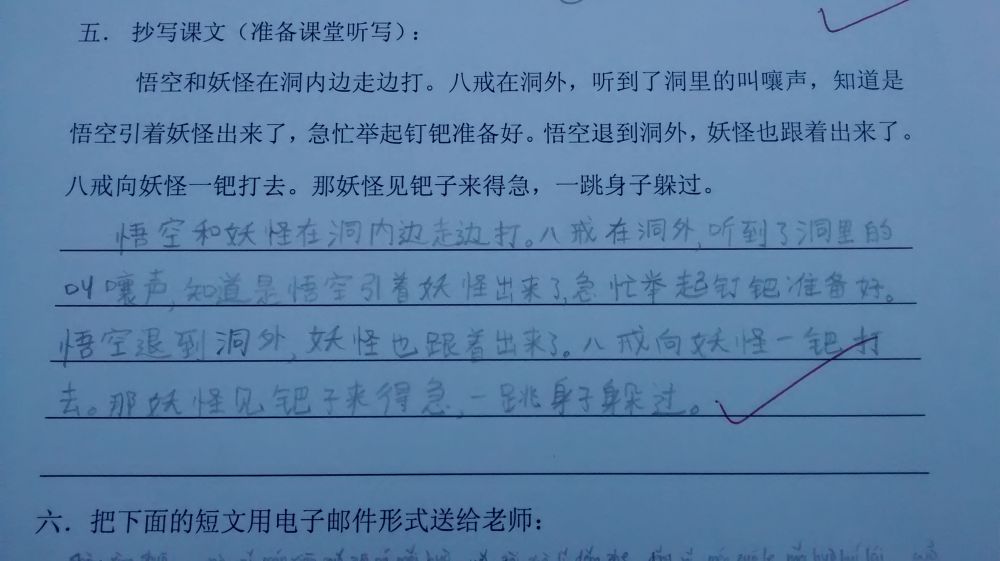 五. 抄写课文（准备课堂听写）:
悟空和妖怪在洞内边走边打。八戒在洞外，听到了洞里的叫嚷声，知道是
悟空引着妖怪出来了，急忙举起钉钯准备好。悟空退到洞外，妖怪也跟着出来了。
八戒向妖怪一钯打去。那妖怪见钯子来得急，一跳身子躲过。
悟空和妖怪在洞内边走边打。八戒在洞外,听到了洞里的
叫嚷声,知道是悟空引着妖怪出来了,急忙举起钉钯准备好。
悟空退到洞外,妖怪也跟着出来了。八戒向妖怪一钯打
去。那妖怪见钯子来得急,一跳身子躲过。
六. 把下面的短文用电子邮件形式送给老师: